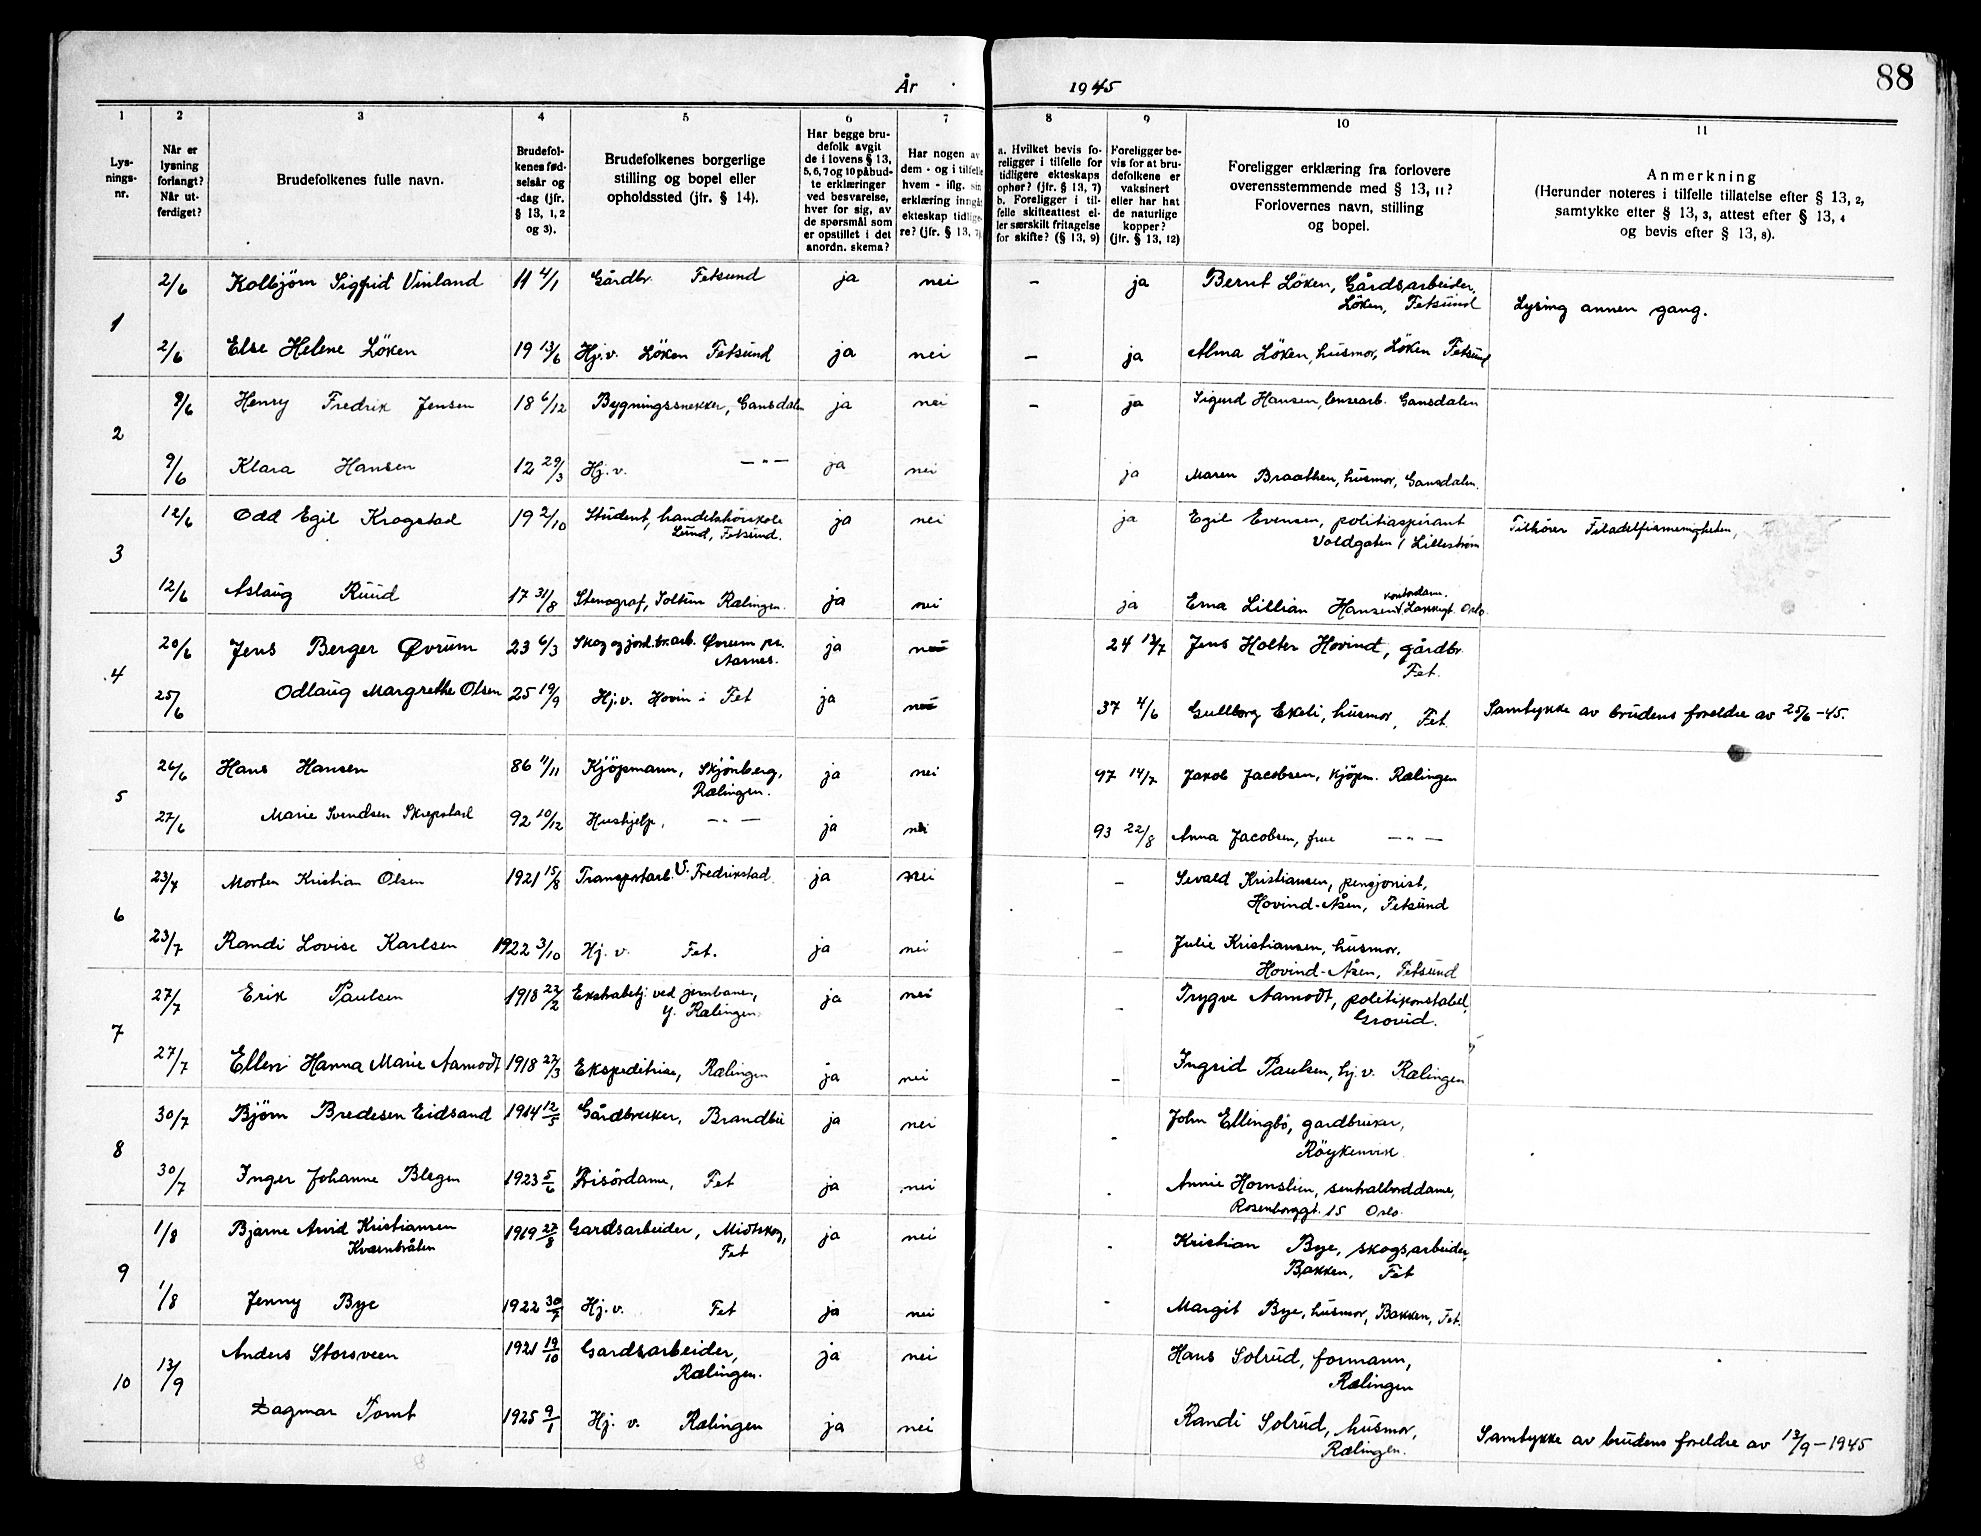 88
År 1945
1 2 3 4 5 6 7 8 9 10 11
Lys-
nings-
nr.
Når er
lysning
forlangt?
Når ut-
ferdiget?
Brudefolkenes fulle navn.
Brudefol-
kenes fød-
selsår og
-dag (jfr.
§ 13, 1, 2
og 3).
Brudefolkenes borgerlige
stilling og bopel eller
opholdssted (jfr. § 14).
Har begge bru-
defolk avgit
de i lovens § 13,
5, 6, 7 og 10 påbud-
te erklæringer
ved besvarelse,
hver for sig, av
de spørsmål som
er opstillet i det
anordn. skema?
Har nogen av
dem - og i tilfelle
hvem - iflg. sin
erklæring inngå
ekteskap tidlige-
re? (jfr. § 13, 7)
a. Hvilket bevis fo-
religger i tilfelle for
tidligere ekteskaps
ophør? (jfr. § 13, 7)
b. Foreligger i til-
felle skifteattest el-
ler særskilt fritagelse
for skifte? (§ 13, 9)
Foreligger be-
vis for at bru-
defolkene er
vaksinert
eller har hat
de naturlige
kopper?
(jfr. § 13, 12)
Foreligger erklæring fra forlovere
overensstemmende med § 13, 11?
Forlovernes navn, stilling
og bopel.
Anmerkning
(Herunder noteres i tilfelle tillatelse efter § 13, 2,
samtykke efter § 13, 3, attest efter § 13, 4
og bevis efter § 13, 8).
1
2/6 Kolbjörn Sigfrid Vinland 11 4/1 Gårdbr. Fetsund ja nei - ja Bernt Löken, Gårdsarbeider,
Löken, Fetsund
Lysing annen gang.
2/6 Else Helene Löken 19 13/6 Hj.v. Löken Fetsund ja nei - ja Alma Löken, husmor, Löken Fetsund
2
9/6 Henry Fredrik Jensen 18 6/12 Bygningssnekker, Gansdalen ja nei - ja Sigurd Hansen, lensearb. Gansdalen
9/6 Klara Hansen 12 29/3 Hj.v. — " — ja nei ja Maren Braathen, husmor, Gansdalen.
3
12/6 Odd Egil Krogstad 19 2/10 Student, handelshöiskole
Lund, Fetsund. ja nei ja Egil Evensen, politiaspirant
Voldgaten 1 Lilleström
Tilhører Filadelfiamenigheten,
12/6 Aslaug Ruud 17 31/8 Stenograf, Soltun Rælingen. ja nei ja Erna Lillian Hansen, kontordam.
Oslo.
4
20/6 Jens Berger Øvrum 23 6/3 Skog og jord.br.arb. Øvrum pr.
Aarnes. ja nei 24 12/7 Jens Holter Hovind, gårdbr.
Fet.
25/6 Odlaug Margrethe Olsen 25 19/9 Hj.v. Hovin i Fet ja nei 37 4/6 Gullborg Ekeli, husmor, Fet. Samtykke av brudens foreldre av 25/6-45.
5
26/6 Hans Hansen 86 11/11 Kjöpmann, Skjönberg,
Rælingen. ja nei 97 14/7 Jakob Jacobsen, kjöpm. Rælingen
27/6 Marie Svendsen Skrepstad 92 10/12 Hushjelp, — " — ja nei 93 22/8 Anna Jacobsen, frue — " —
6
23/7 Morten Kristian Olsen 1921 15/8 Transportarb. V. Fredrikstad ja nei - Sevald Kristiansen, pensjonist,
Hovind-Åsen, Fetsund
23/7 Randi Lovise Karlsen 1922 3/10 Hj. v. Fet. ja nei - Julie Kristiansen, husmor,
Hovind-Åsen, Fetsund
7
27/7 Erik Paulsen 1918 22/2 Ekstrabetj. ved jernbanen,
Y. Rælingen. ja nei - Trygve Aamodt, politikonstabel,
Grorud.
27/7 Ellen Hanna Marie Aamodt 1918 27/3 Ekspeditrise, Rælingen ja nei - Ingrid Paulsen, hj.v. Rælingen
8
30/7 Bjørn Bredesen Eidsand 1914 12/5 Gårdbruker, Brandbu ja nei - John Ellingbö, gardbruker,
Röykenvik
30/7 Inger Johanne Blegen 1923 5/6 Frisördame, Fet ja nei - Annie Hornslien, sentralborddame,
Rosenborggt. 15 Oslo.
9
1/8 Bjarne Arvid Kristiansen
Kværnbråten 1919 27/8 Gardsarbeider, Midtskog,
Fet ja nei - Kristian Bye, skogsarbeider,
Bakken, Fet
1/8 Jenny Bye 1922 30/7 Hj.v. Fet ja nei - Margit Bye, husmor, Bakken, Fet.
10
13/9 Anders Storsveen 1921 19/10 Gardsarbeider,
Rælingen. ja nei Hans Solrud, formann,
Rælingen
Dagmar Tomt 1925 9/1 Hj. v. Rælingen ja nei Randi Solrud, husmor,
Rælingen.
Samtykke av brudens foreldre av 13/9-1945